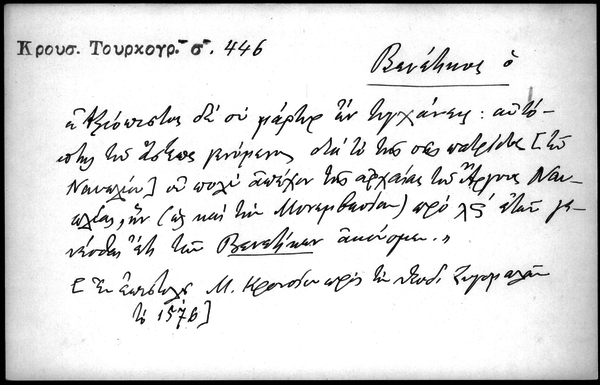 Κρουσ. Τουρκογρ. σ. 446
Βενέτικος ὁ
"Ἀξιόπιστος δὲ σὺ μάρτυρ ἂν τυγχάνεις: αὐτό-
πτης τοῦ Ἄστεος γενόμενος διὰ τὸ τῆς σῆς πατρίδος [τοῦ
Ναυπλίου] οὐ πολὺ ἀπέχον τῆς ἀρχαίας τοῦ Ἄργους Ναυ-
πλίας, ἣν (ὡς καὶ τὴν Μονεμβασίαν) πρὸ λϛ´ ἐτῶν γε-
νέσθαι ἐκ τῶν Βενετίκων ἀκούομεν."
[Ἐν ἐπιστολῇ Μ. Κρουσίου πρὸς τὸν Θεοδ. Ζυγομαλᾶν
τῷ 1576]